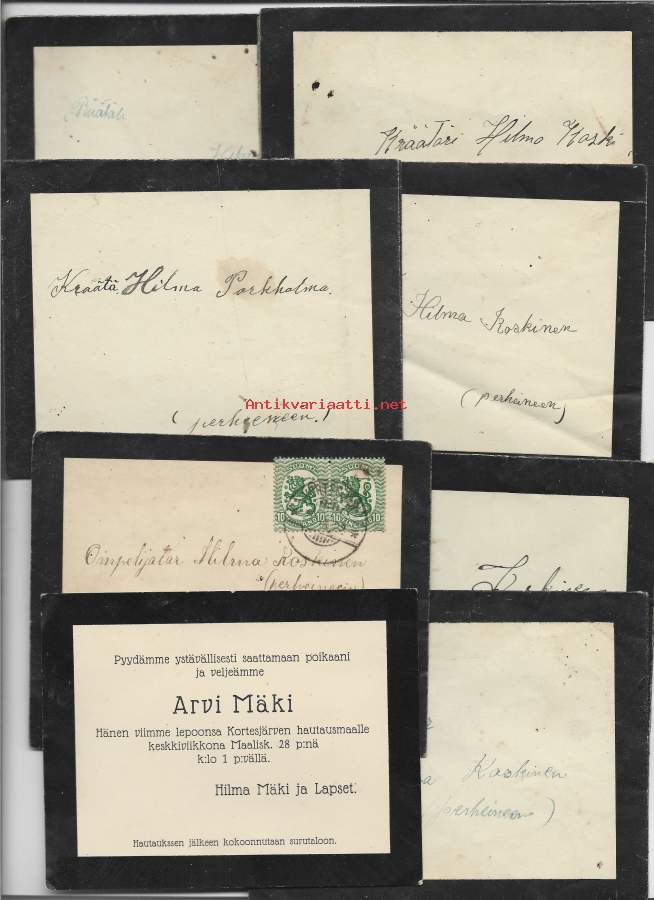 Räätäli
Kräätäri Hilma Koski
Kräätä. Hilma Porkholma.
(perheineen.)
Hilma Koskinen
(perheineen)
Antikvariaatti.net
SUOMI
10 10 10 10
Ompelijatar Hilma Koskinen
(perheineen)
Koskinen
Koskinen
(perheineen)
Pyydämme ystävällisesti saattamaan poikaani
ja veljeämme
Arvi Mäki
Hänen viimme lepoonsa Kortesjärven hautausmaalle
keskkiviikkona Maalisk. 28 p:nä
k:lo 1 p:vällä.
Hilma Mäki ja Lapset.
Hautaukssen jälkeen kokoonnutaan surutaloon.